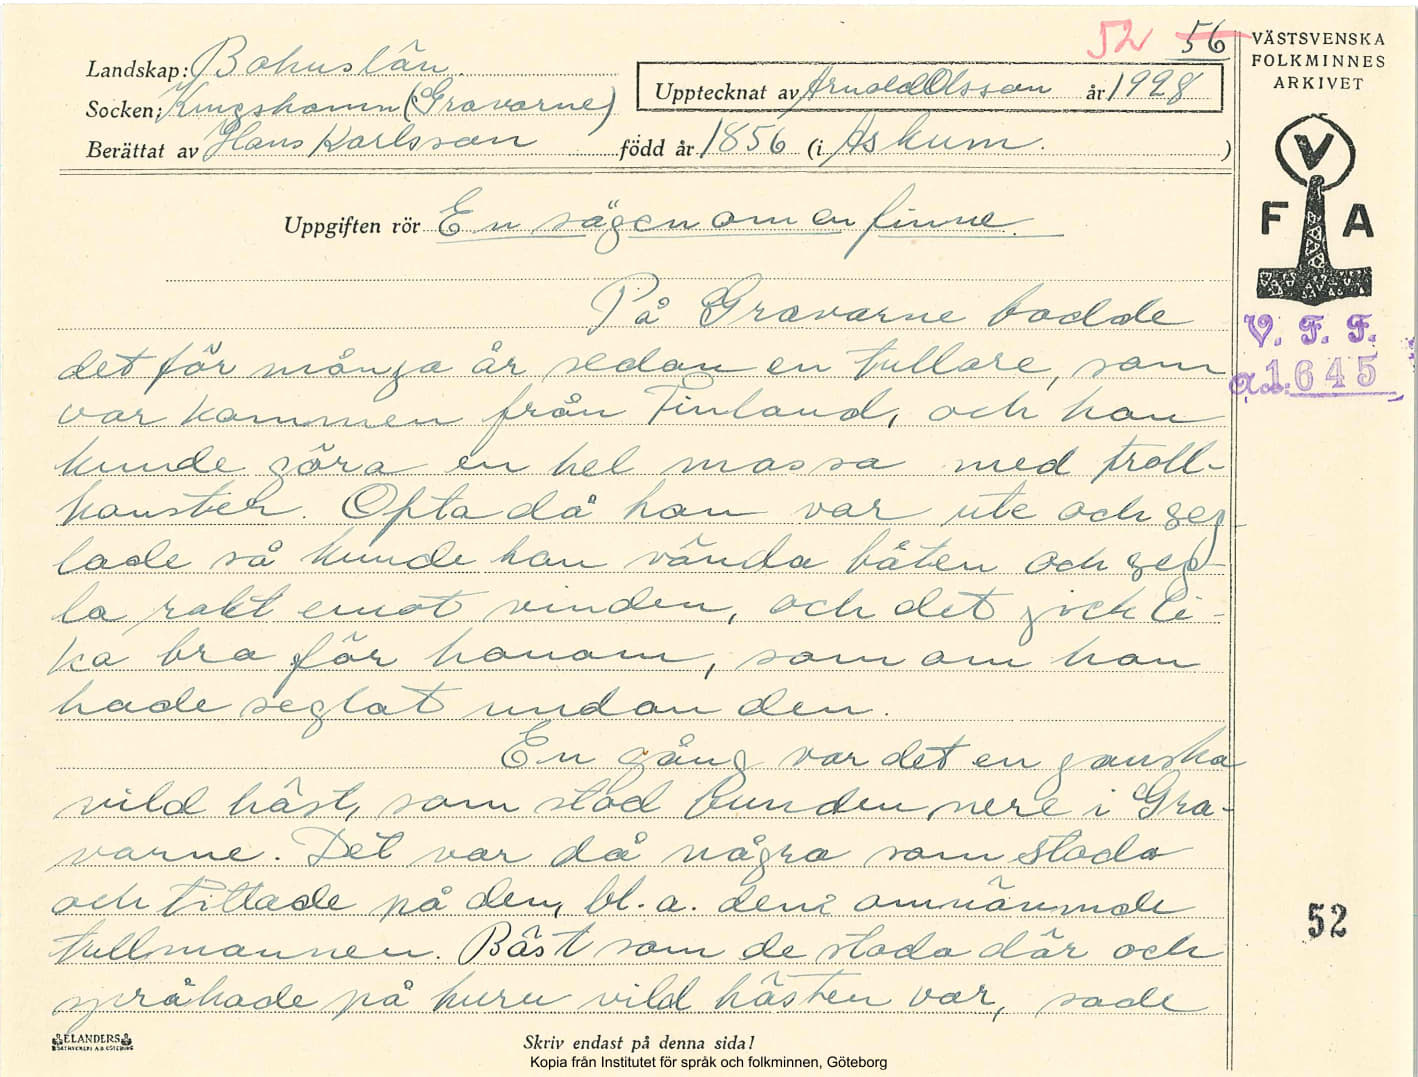 52 56
Landskap: Bohuslän.
Socken: Kungshamn (Gravarne)
Upptecknat av Arnold Olsson år 1928
Berättat av Hans Karlsson född år 1856 (i Askum. )
VÄSTSVENSKA
FOLKMINNES
ARKIVET
V
F A
Uppgiften rör En sägen om en finne.
V. F. F.
1645
På Gravarne bodde
det för många år sedan en tullare, som
var kommen från Finland, och han
kunde göra en hel massa med troll-
konster. Ofta då han var ute och seg-
lade så kunde han vända båten och seg-
la rakt emot vinden, och det gick li-
ka bra för honom, som om han
hade seglat undan den.
En gång var det en ganska
vild häst, som stod bunden nere i Gra-
varne. Det var då några som stodo
och tittade på den, bl. a. den omnämnde
tullmannen. Bäst som de stodo där och
språkade på huru vild hästen var, sade
52
ELANDERS
Skriv endast på denna sida!
Kopia från Institutet för språk och folkminnen, Göteborg